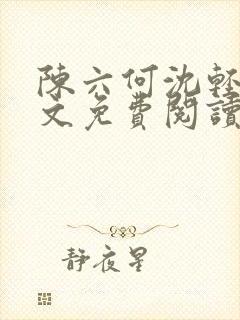 陳六何沈輕
文免費閱讀
靜夜星